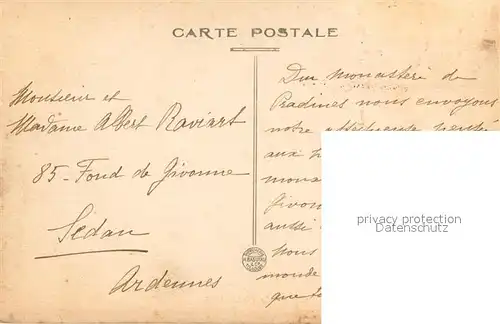 CARTE POSTALE
Monsieur et
Madame Albert Raviart
85 - Fond de Givonne
Sedan
Ardennes
Du monastère de
Pradines nous envoyons
notre affectueuse pensée
aux
mona
Givon
aussi
Nous
monde
que
privacy protection
VERIFICATION REQUIRED